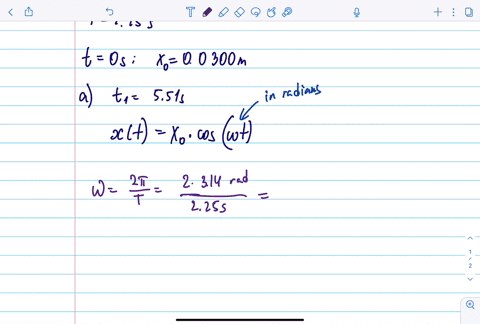 t = 0s: x₀ = 0.0300m
a) t₁ = 5.51s
in radians
x(t) = x₀ · cos(ωt)
ω = 2π/T = 2·3.14 rad/2.25s =
1
2